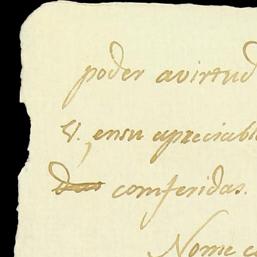 poder avirtud
V. ensu apreciabl
comferidas.
Nome c